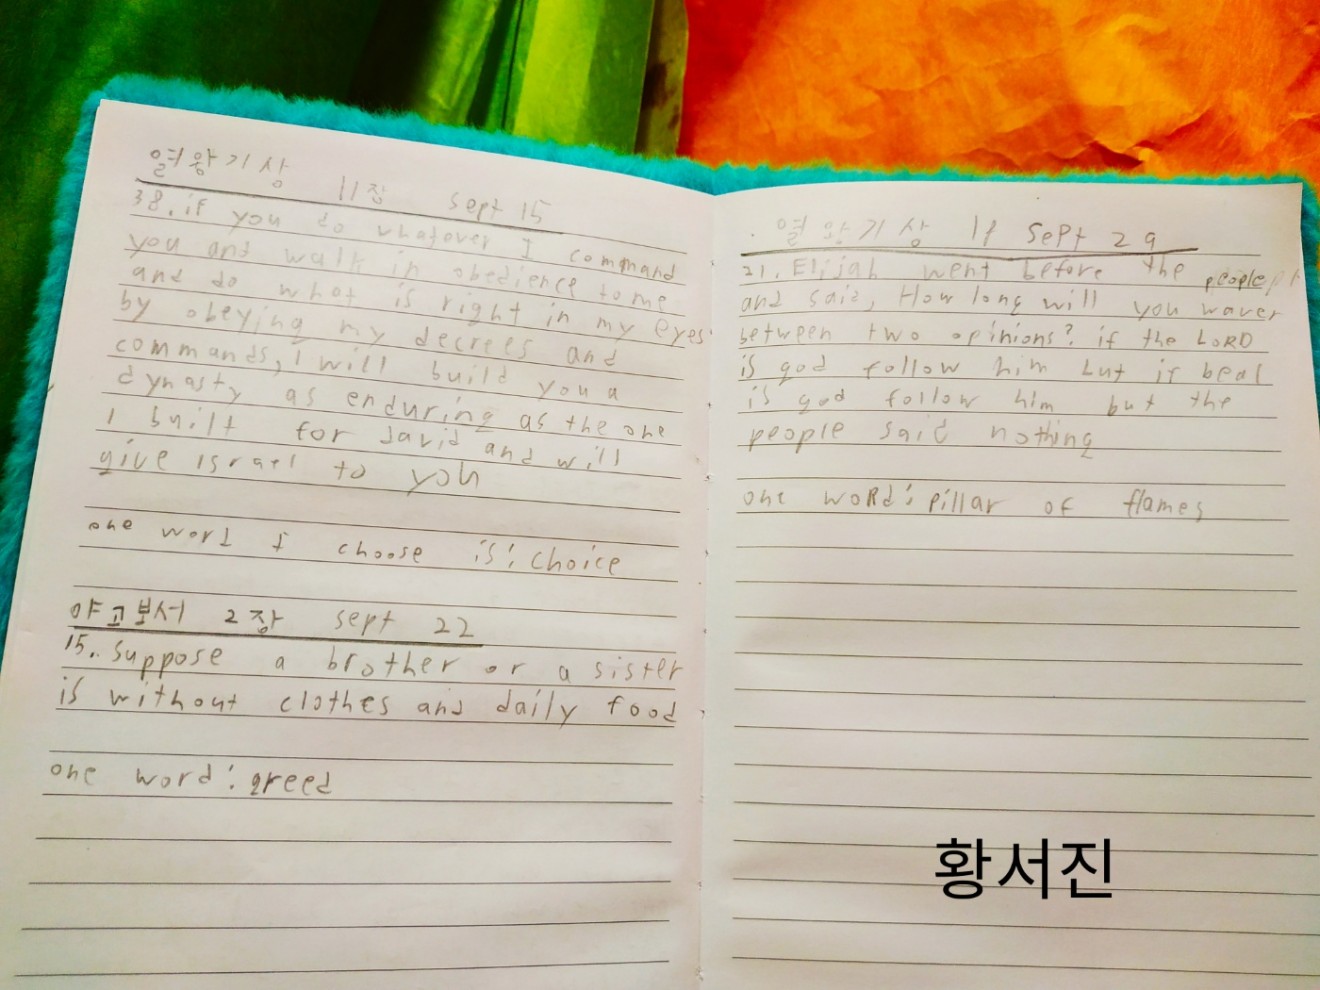 열왕기상 11장 sept 15
38. if you do whatever I command
you and walk in obedience to me
and do what is right in my eyes
by obeying my decrees and
commands, I will build you a
dynasty as enduring as the one
I built for david and will
give israel to you
one word I choose is: choice
야고보서 2장 sept 22
15. Suppose a brother or a sister
is without clothes and daily food
one word: greed
열왕기상 sept 29
21. Elijah went before the people
and said, How long will you waver
between two opinions? if the LORD
is god follow him but if beal
is god follow him but the
people said nothing
one word: pillar of flames
황서진